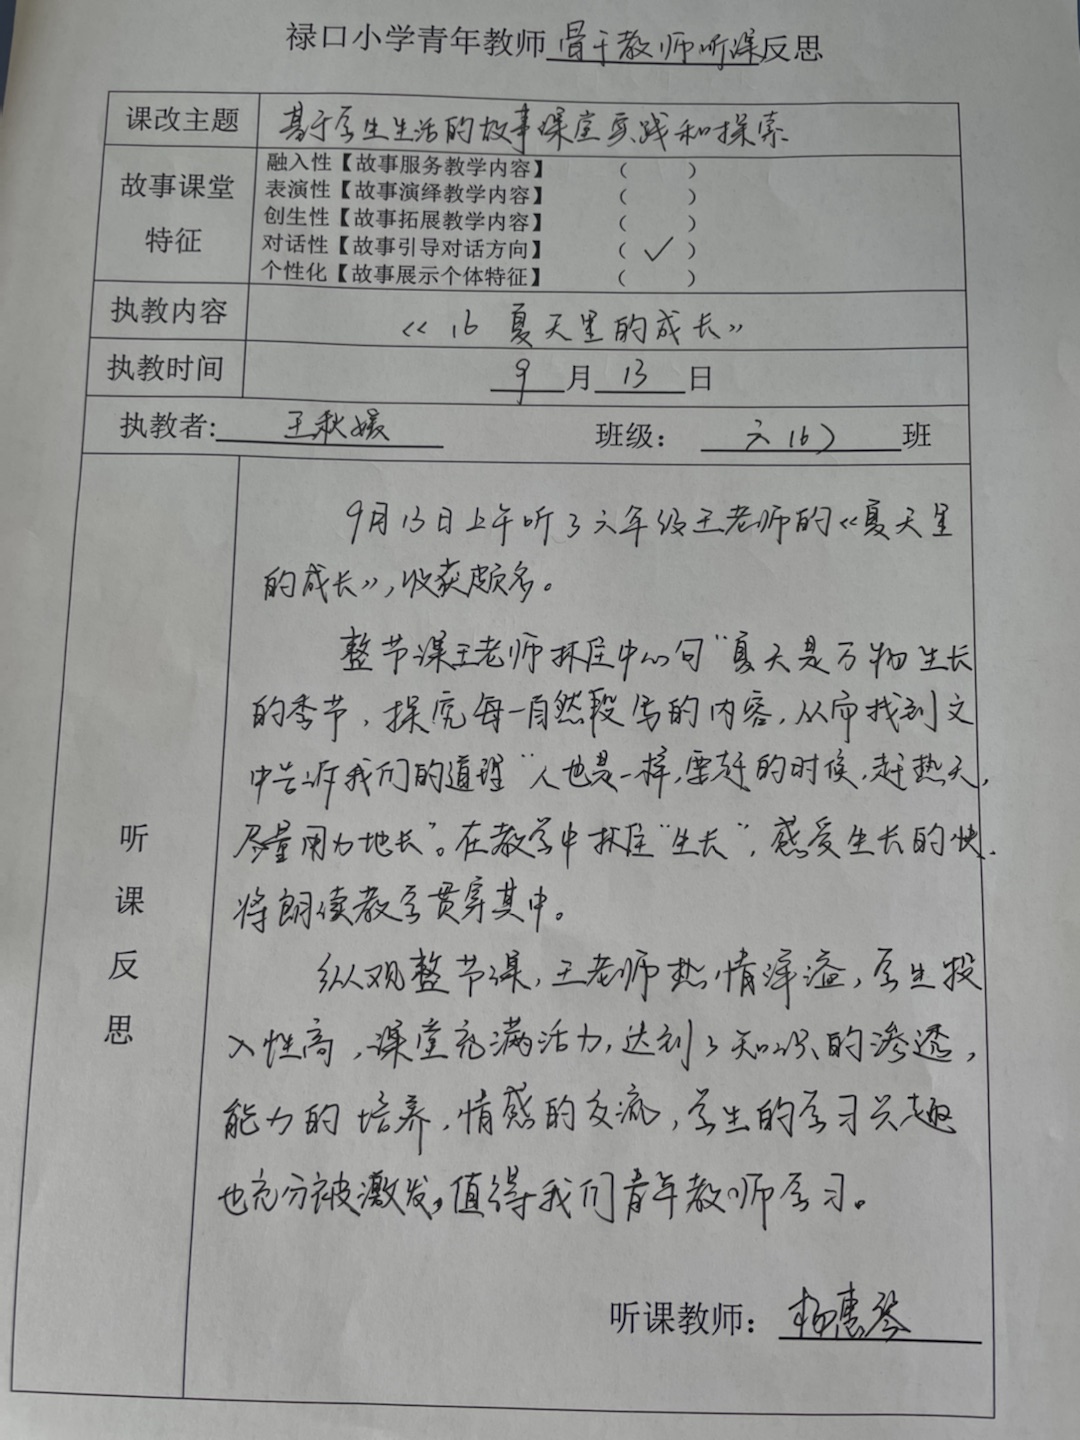 禄口小学青年教师骨干教师听课反思
课改主题 基于学生生活的故事课堂实践和探索
故事课堂特征
融入性【故事服务教学内容】 （ ）
表演性【故事演绎教学内容】 （ ）
创生性【故事拓展教学内容】 （ ）
对话性【故事引导对话方向】 （ ✓ ）
个性化【故事展示个体特征】 （ ）
执教内容 《16 夏天里的成长》
执教时间 9 月 13 日
执教者: 王秋媛 班级: 六(6) 班
听课反思
9月13日上午听了六年级王老师的《夏天里
的成长》,收获颇多。
整节课王老师抓住中心句“夏天是万物生长
的季节,探究每一自然段写的内容,从而找到文
中告诉我们的道理“人也是一样,要赶的时候,赶热天,
尽量用力地长”。在教学中抓住“生长”,感受生长的快.
将朗读教学贯穿其中。
纵观整节课,王老师热情洋溢,学生投
入性高,课堂充满活力,达到了知识的渗透,
能力的培养,情感的交流,学生的学习兴趣
也充分被激发,值得我们青年教师学习。
听课教师: 杨惠琴